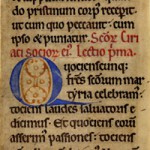 do pristinum corp recepit:
ut cum quo peccauit: cum
ipso & puniatur. Sc̄oꝝ Ciri
aci socioꝝ ei. Lectio p̄ma.
Quociēscumq;
tres scōꝝum mar
tyria celebram;
tociens laudes saluatoris e
dicimus. Et quociens eoꝝ
asserim passiones: tociens